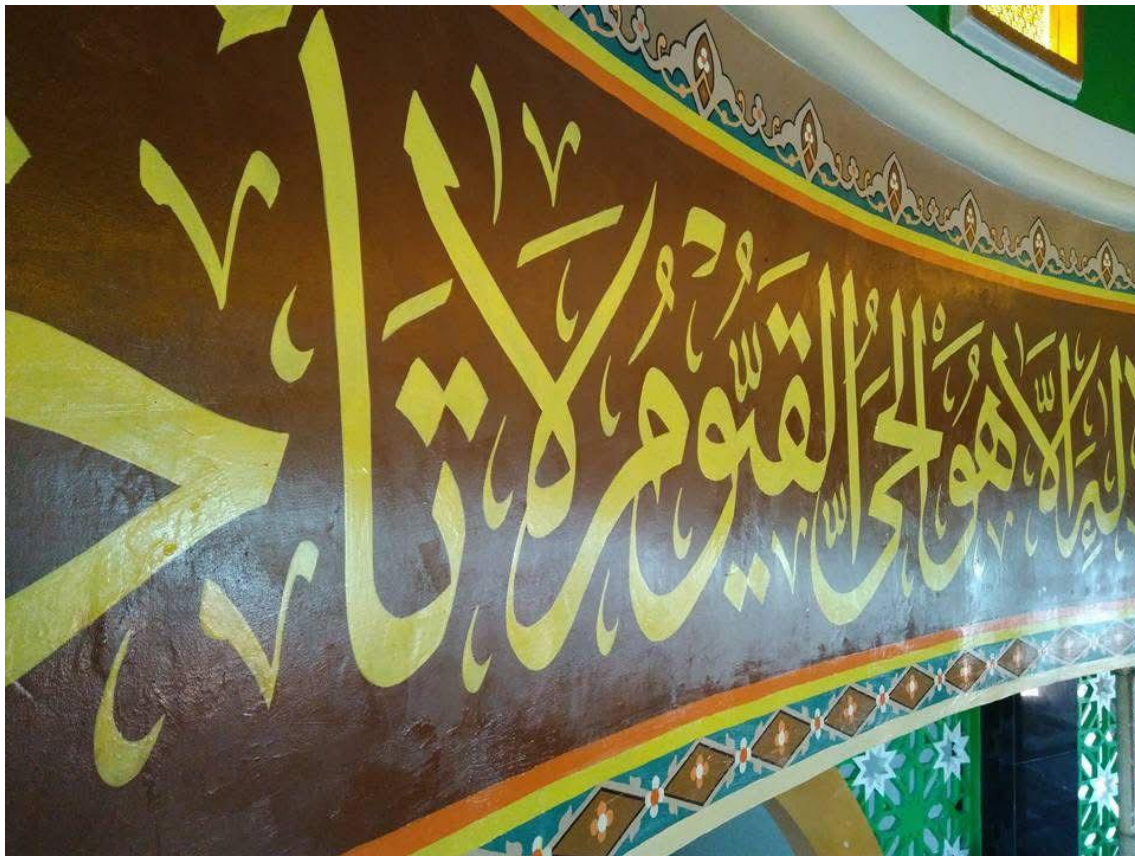 إِلٰهَ إِلَّا هُوَ الْحَيُّ الْقَيُّومُ لَا تَأْخ